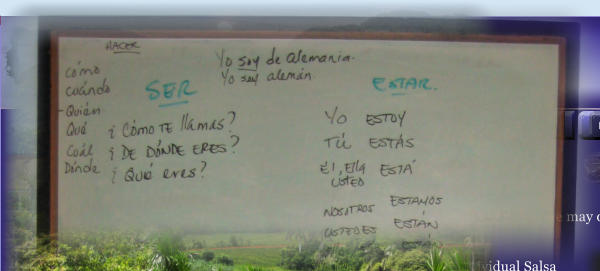 HACER
Yo soy de Alemania.
Yo soy alemán.
Cómo
Cuándo
Quién
Qué
Cuál
Dónde
SER
¿ CÓMO TE llamas?
¿ DE DÓNDE ERES?
¿ Qué eres?
ESTAR.
Yo ESTOY
TÚ ESTÁS
Él, Ella ESTÁ
USTED
NOSOTROS ESTAMOS
USTEDES ESTÁN
e may
ividual Salsa